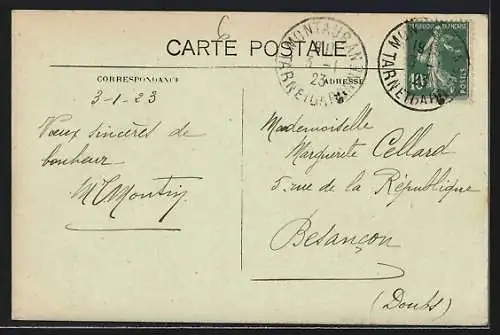 6
CARTE POSTALE
CORRESPONDANCE
ADRESSE
MONTAUBAN
TARN-ET-GARONNE
3 - 1
23
MONTAUBAN
TARN-ET-GARONNE
POSTES
10
3-1-23
Vœux sincères de
bonheur
Mademoiselle
Marguerite Cellard
5, rue de la République
Besançon
(Doubs)